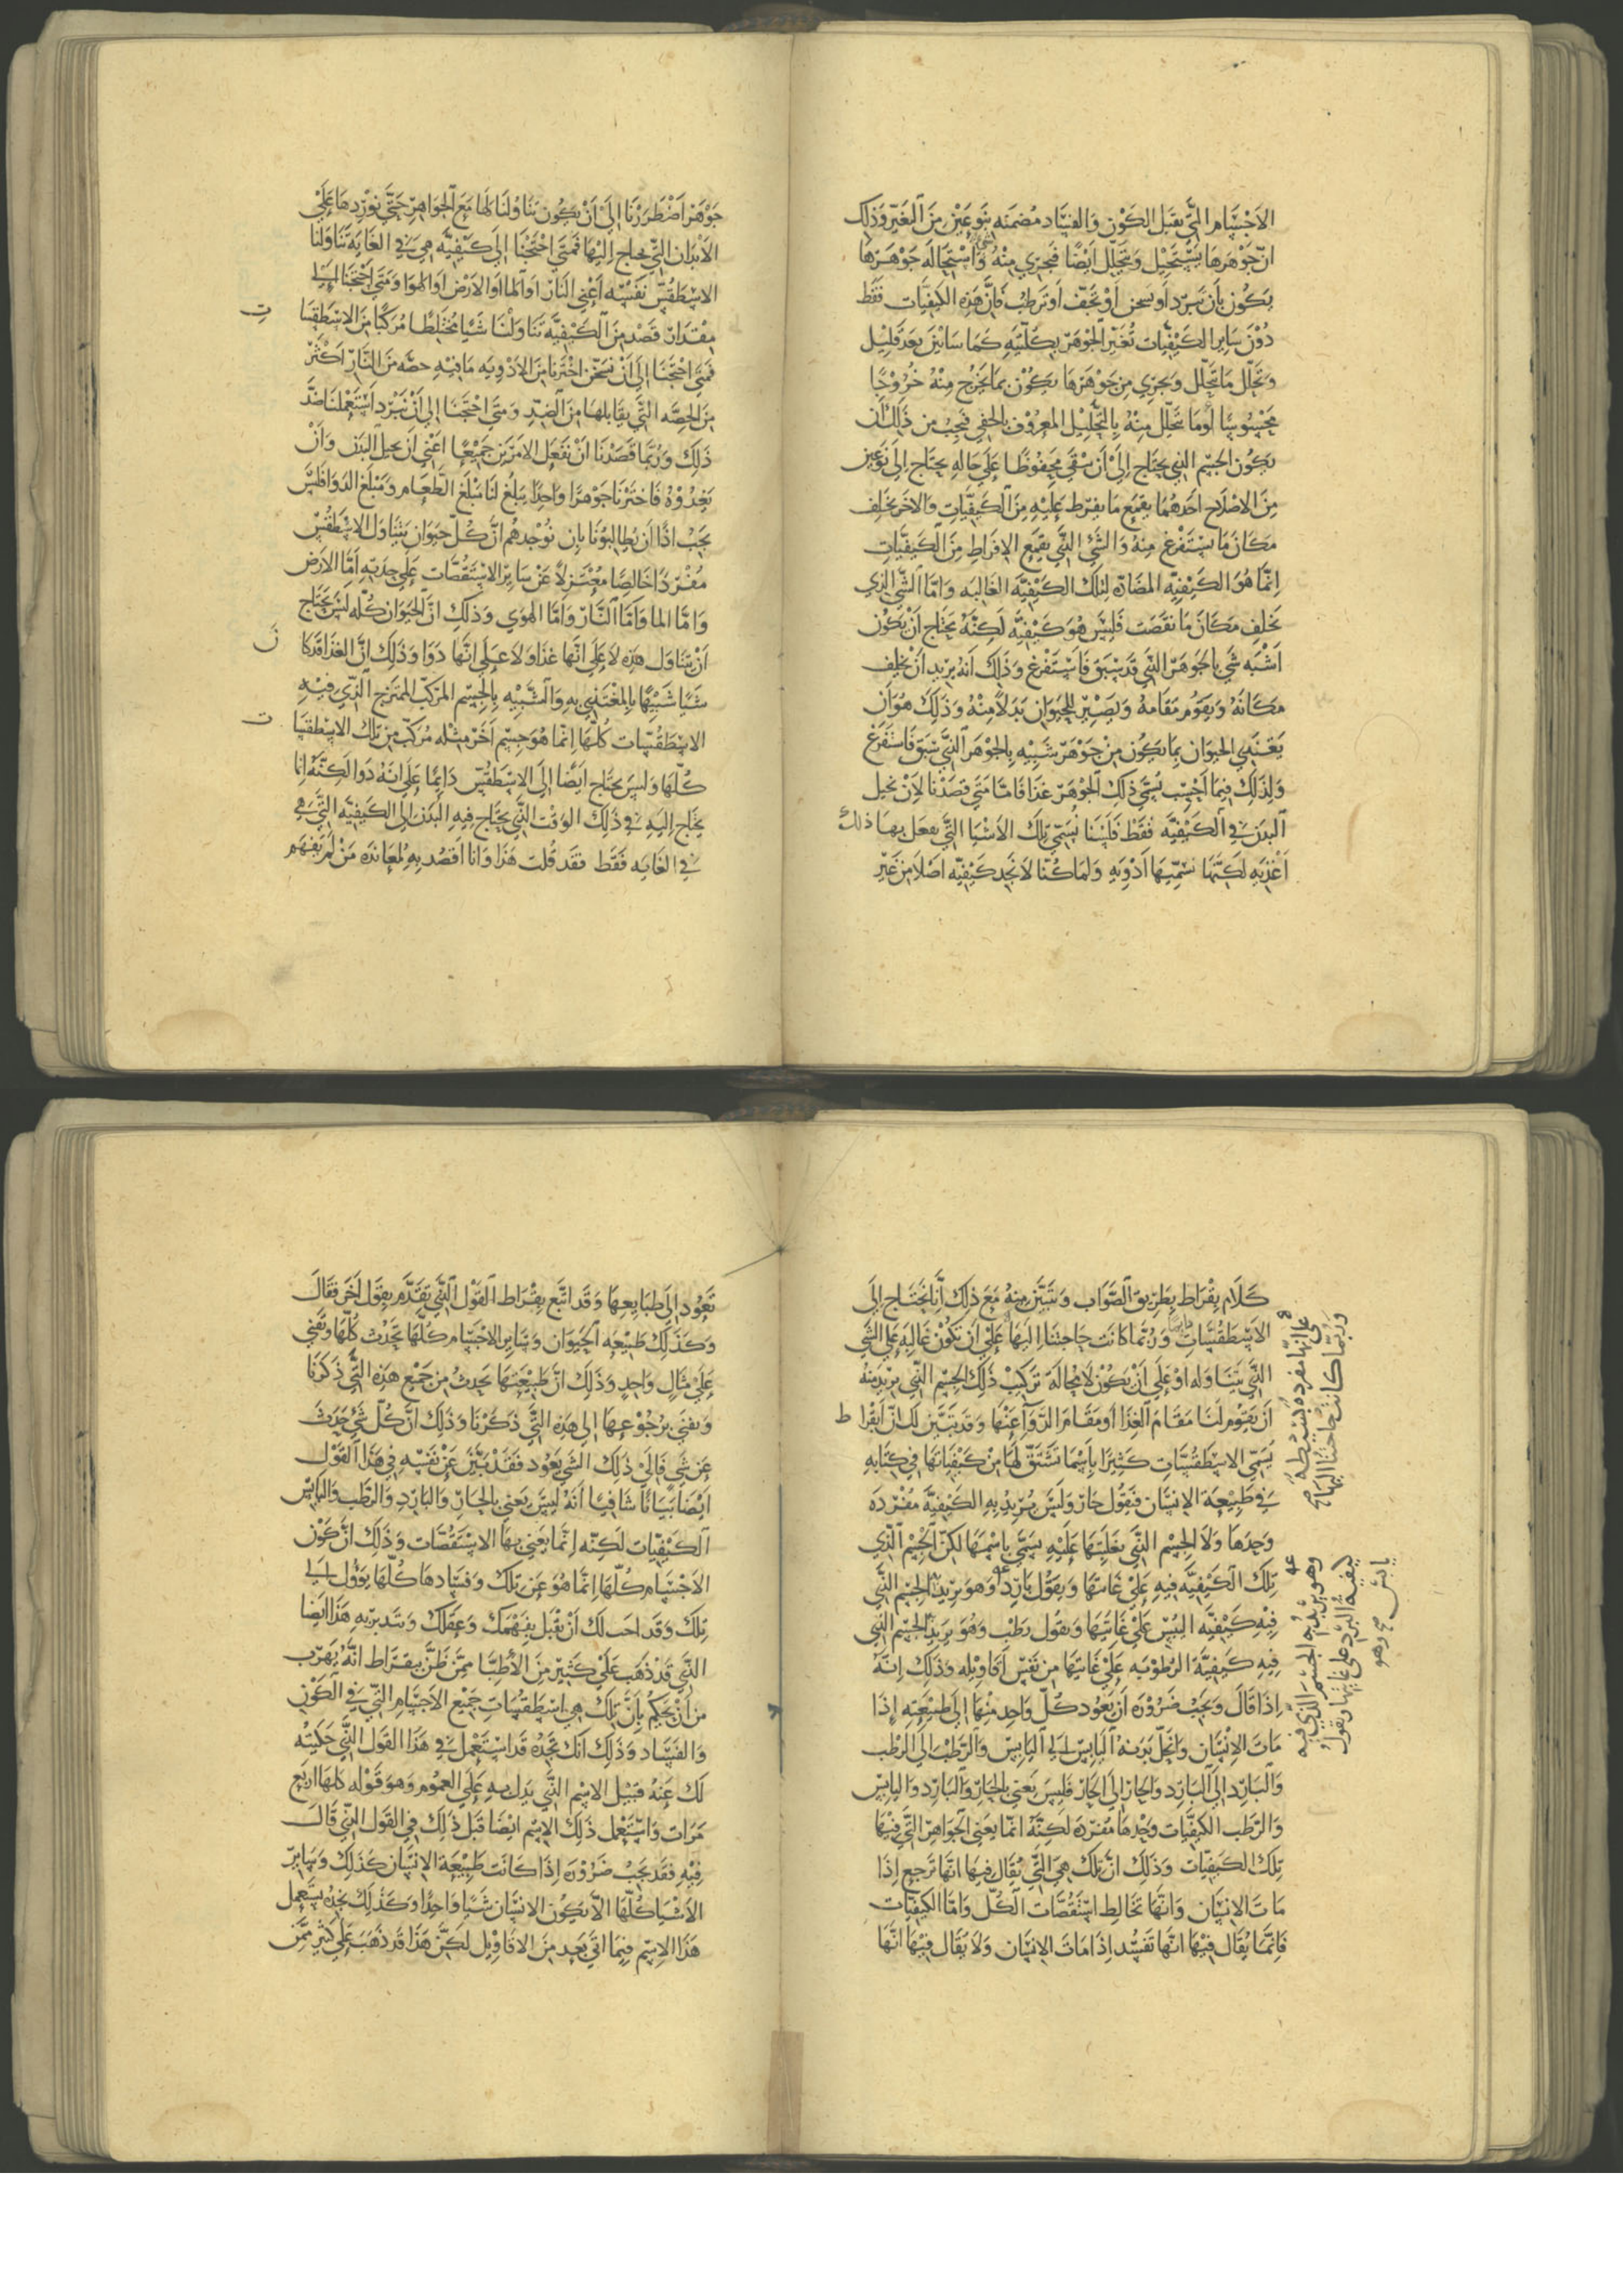 الاجسام التي تقبل الكون والفساد مضمنه بنوعين من التغير وذلك
ان جوهرها يستحيل ويتحلل ايضا فيجري منه شي واستحالة جوهرها
يكون بان تبرد او تسخن او تجفف او ترطب فان هذه الكيفيات فقط
دون ساير الكيفيات تغير الجوهر بكليته كما سابين بعد قليل
وتحلل ما يتحلل ويجري من جوهرها يكون بما يخرج منه خروجا
محسوسا او ما يتحلل منه بالتحليل المعروف بالخفي فيجب من ذلك ان
يكون الجسم الذي يحتاج الى ان يبقى محفوظا على حاله يحتاج الى نوعين
من الاصلاح احدهما يقمع ما يفرط عليه من الكيفيات والاخر يخلف
مكان ما يستفرغ منه والشي الذي يقمع الافراط من الكيفيات
انما هو الكيفيه المضاده لتلك الكيفية الغالبه واما الشي الذي
يخلف مكان ما نقصت فليس هو كيفية لكنه يحتاج ان يكون
اشبه شي بالجوهر الذي قد سبق فاستفرغ وذلك انه يريد ان يخلف
مكانه ويقوم مقامه ويصير للحيوان بدلا منه وذلك هو ان
يغتذي الحيوان بما يكون من جوهر شبيه بالجوهر الذي سبق فاستفرغ
ولذلك فيما احسب يسمى ذلك الجوهر غذا فاما متى قصدنا لان نحيل
البدن في الكيفيه فقط فلسنا نسمي تلك الاشيا التي نفعل بها ذلك
اغذيه لكنها نسميها ادويه ولما كنا لا نجد كيفيه اصلا من غير
جوهر اضطررنا الى ان يكون تناولنا لها مع الجواهر حتى نوردها على
الابدان التي نحتاج اليها فمتى احتجنا الى كيفيه هي في الغاية تناولنا
الاسطقس نفسه اعني النار او الما او الارض او الهوا ومتى احتجنا الى
مقدار قصد من الكيفيه تناولنا شيا مختلطا مركبا من الاسطقسات
فمتى احتجنا الى ان نسخن اخترنا من الادويه ما فيه حصه من النار اكثر
من الحصه التي يقابلها من الضد ومتى احتجنا الى ان نبرد استعملنا ضد
ذلك وربما قصدنا ان نفعل الامرين جميعا اعني ان نحيل البدن وان
نغذوه فاخترنا جوهرا واحدا يبلغ لنا مبلغ الطعام ومبلغ الدوا فليس
يجب اذا ان يطالبونا بان نوجدهم ان كل حيوان يتناول الاسطقس
مفردا خالصا معتزلا عن ساير الاستقصات على حدته اما الارض
واما الما واما النار واما الهوى وذلك ان الحيوان كله ليس يحتاج
ان يتناول هذه لا على انها غذا ولا على انها دوا وذلك ان الغذا قد كان
شيا شبيها بالمغتذي به والشبيه بالجسم المركب الممتزج الذي فيه
الاسطقسات كلها انما هو جسم اخر مثله مركب من تلك الاسطقسات
كلها وليس يحتاج ايضا الى الاسطقس دايما على انه دوا لكنه انما
يحتاج اليه في ذلك الوقت الذي يحتاج فيه البدن الى الكيفيه التي هي
في الغايه فقط فقد قلت هذا وانا اقصد به لمعانده من لم يفهم
كلام بقراط بطريق الصواب ويتبين منه مع ذلك انا نحتاج الى
الاسطقسات دايما وربما كانت حاجتنا اليها على ان تكون غالبه على الشي
الذي يتناوله او على ان يكون لا محالة تركيب ذلك الجسم الذي نريد منه
ان يقوم لنا مقام الغذا او مقام الدوا عنها وقد يتبين لك ان ابقراط
يسمي الاسطقسات كثيرا باسما تشتق لها من كيفياتها في كتابه
في طبيعة الانسان فيقول حار وليس يريد به الكيفية مفرده
وحدها ولا الجسم الذي بغلبتها عليه يسمى باسمها لكن الجسم الذي
تلك الكيفيه فيه على غايتها ويقول بارد وهو يريد الجسم الذي
فيه كيفيه اليبس على غايتها ويقول رطب وهو يريد الجسم الذي
فيه كيفية الرطوبه على غايتها من نفس اقاويله وذلك انه
اذا قال ويجب ضروره ان يعود كل واحد منها الى طبيعته اذا
مات الانسان وانحل بدنه اليابس الى اليابس والرطب الى الرطب
والبارد الى البارد والحار الى الحار فليس يعني بالحار والبارد واليابس
والرطب الكيفيات وحدها مفرده لكنه انما يعني الجواهر التي فيها
تلك الكيفيات وذلك ان تلك هي التي يقال فيها انها ترجع اذا
مات الانسان وانها تخالط استقصات الكل واما الكيفيات
فانما يقال فيها انها تفسد اذا مات الانسان ولا يقال فيها انها
على انها مفرده بسيطه
وربما كانت حاجتنا اليها
وهو يريد به الجسم الذي فيه
كيفية البرد على غايتها ويقول
يابس وهو
تعود الى طبايعها وقد اتبع بقراط القول الذي تقدم بقول اخر فقال
وكذلك طبيعه الحيوان وساير الاجسام كلها تحدث كلها وتفنى
على مثال واحد وذلك ان طبيعتها تحدث من جميع هذه التي ذكرنا
وتفنى برجوعها الى هذه التي ذكرنا وذلك ان كل شي حدث
عن شي فالى ذلك الشي يعود فقد بين عن نفسه في هذا القول
ايضا بيانا شافيا انه ليس يعني بالحار والبارد والرطب واليابس
الكيفيات لكنه انما يعني بها الاستقصات وذلك ان كون
الاجسام كلها انما هو عن تلك وفسادها كلها يؤول الى
تلك وقد احب لك ان تقبل بفهمك وعقلك وتتدبر به هذا ايضا
الذي قد ذهب على كثير من الاطبا ممن ظن ببقراط انه يهرب
من ان يحكم بان تلك هي اسطقسات جميع الاجسام التي في الكون
والفساد وذلك انك تجده قد استعمل في هذا القول الذي حكيته
لك عنه قبيل الاسم الذي يدل به على العموم وهو قوله كلها اربع
مرات واستعمل ذلك الاسم ايضا قبل ذلك في القول الذي قال
فيه فقد يجب ضروره اذا كانت طبيعة الانسان كذلك وساير
الاشيا كلها الا يكون الانسان شيا واحدا وكذلك نجده يستعمل
هذا الاسم فيما اتى بعد من الاقاويل لكن هذا قد ذهب على كثير ممن